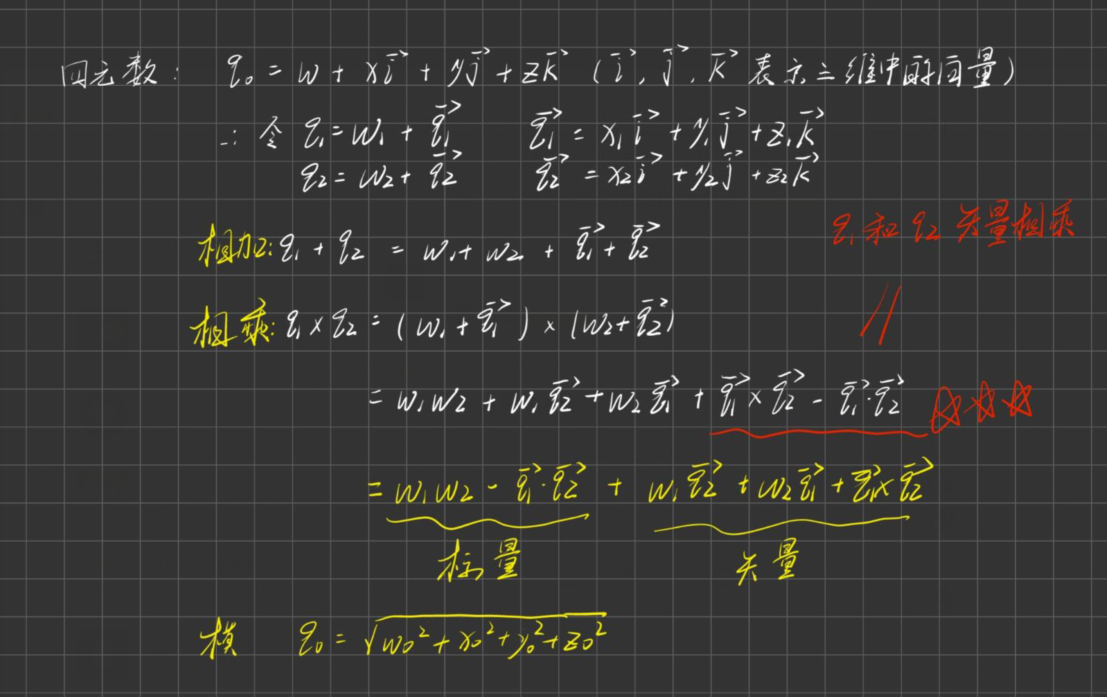 四元数: q₀ = w + xi⃗ + yj⃗ + zk⃗ (i⃗, j⃗, k⃗ 表示三维中的向量)
∴ 令 q₁ = w₁ + q₁⃗    q₁⃗ = x₁i⃗ + y₁j⃗ + z₁k⃗
q₂ = w₂ + q₂⃗    q₂⃗ = x₂i⃗ + y₂j⃗ + z₂k⃗
q₁和q₂矢量相乘
相加: q₁ + q₂ = w₁ + w₂ + q₁⃗ + q₂⃗
相乘: q₁ × q₂ = (w₁ + q₁⃗) × (w₂ + q₂⃗)
//
= w₁w₂ + w₁q₂⃗ + w₂q₁⃗ + q₁⃗ × q₂⃗ − q₁⃗·q₂⃗ ☆☆☆
= w₁w₂ − q₁⃗·q₂⃗ + w₁q₂⃗ + w₂q₁⃗ + q₁⃗ × q₂⃗
标量    矢量
模 q₀ = √(w₀² + x₀² + y₀² + z₀²)